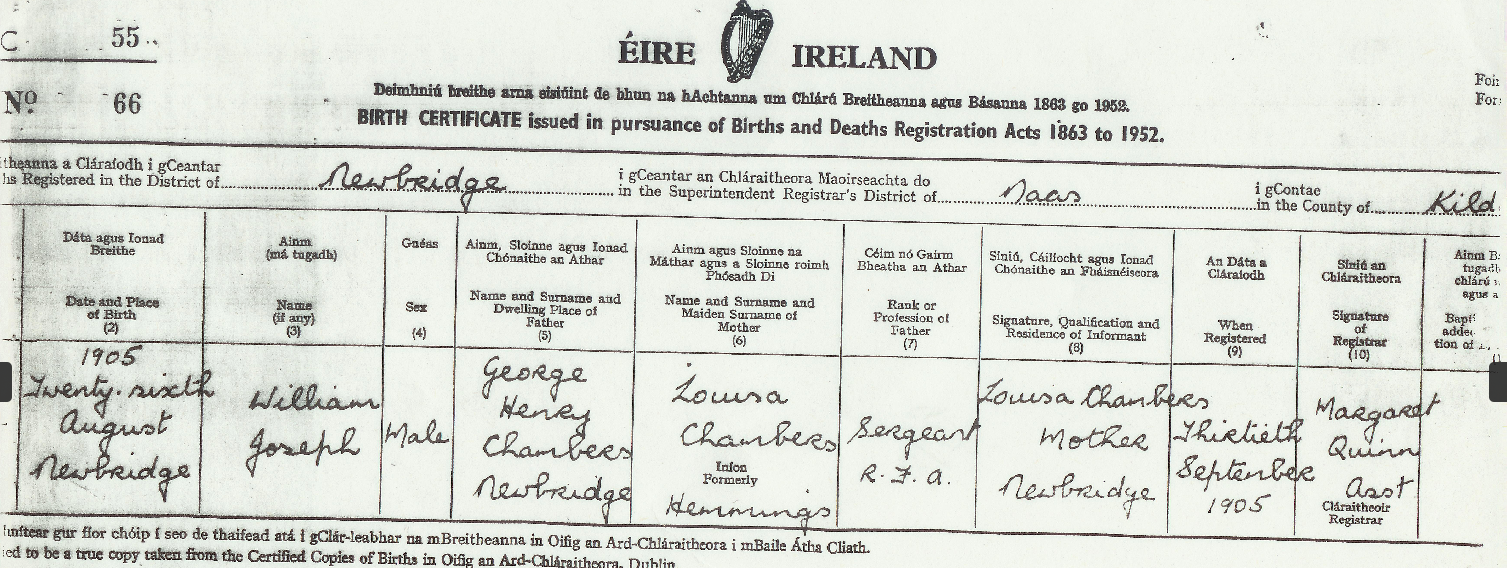 C 55
ÉIRE IRELAND
Nº 66
Foir
For
Deimhniú breithe arna eisiúint de bhun na hAchtanna um Chlárú Breitheanna agus Básanna 1863 go 1952.
BIRTH CERTIFICATE issued in pursuance of Births and Deaths Registration Acts 1863 to 1952.
theanna a Cláraíodh i gCeantar
hs Registered in the District of Newbridge
i gCeantar an Chláraitheora Maoirseachta do
in the Superintendent Registrar's District of Naas
i gContae
in the County of Kild
Dáta agus Ionad
Breithe
Date and Place
of Birth
(2)
Ainm
(má tugadh)
Name
(if any)
(3)
Gnéas
Sex
(4)
Ainm, Sloinne agus Ionad
Chónaithe an Athar
Name and Surname and
Dwelling Place of
Father
(5)
Ainm agus Sloinne na
Máthar agus a Sloinne roimh
Phósadh Di
Name and Surname and
Maiden Surname of
Mother
(6)
Céim nó Gairm
Bheatha an Athar
Rank or
Profession of
Father
(7)
Síniú, Cáilíocht agus Ionad
Chónaithe an Fháisnéiseora
Signature, Qualification and
Residence of Informant
(8)
An Dáta a
Cláraíodh
When
Registered
(9)
Síniú an
Chláraitheora
Signature
of
Registrar
(10)
Ainm B
tugadh
chlárú
agus a
Bapt
adde
tion of
1905
Twenty-sixth
August
Newbridge
William
Joseph
Male
George
Henry
Chambers
Newbridge
Louisa
Chambers
Iníon
Formerly
Hemmings
Sergeant
R. F. A.
Louisa Chambers
Mother
Newbridge
Thirtieth
September
1905
Margaret
Quinn
Asst
Cláraitheoir
Registrar
unítear gur fíor chóip í seo de thaifead atá i gClár-leabhar na mBreitheanna in Oifig an Ard-Chláraitheora i mBaile Átha Cliath.
ied to be a true copy taken from the Certified Copies of Births in Oifig an Ard-Chláraitheora, Dublin